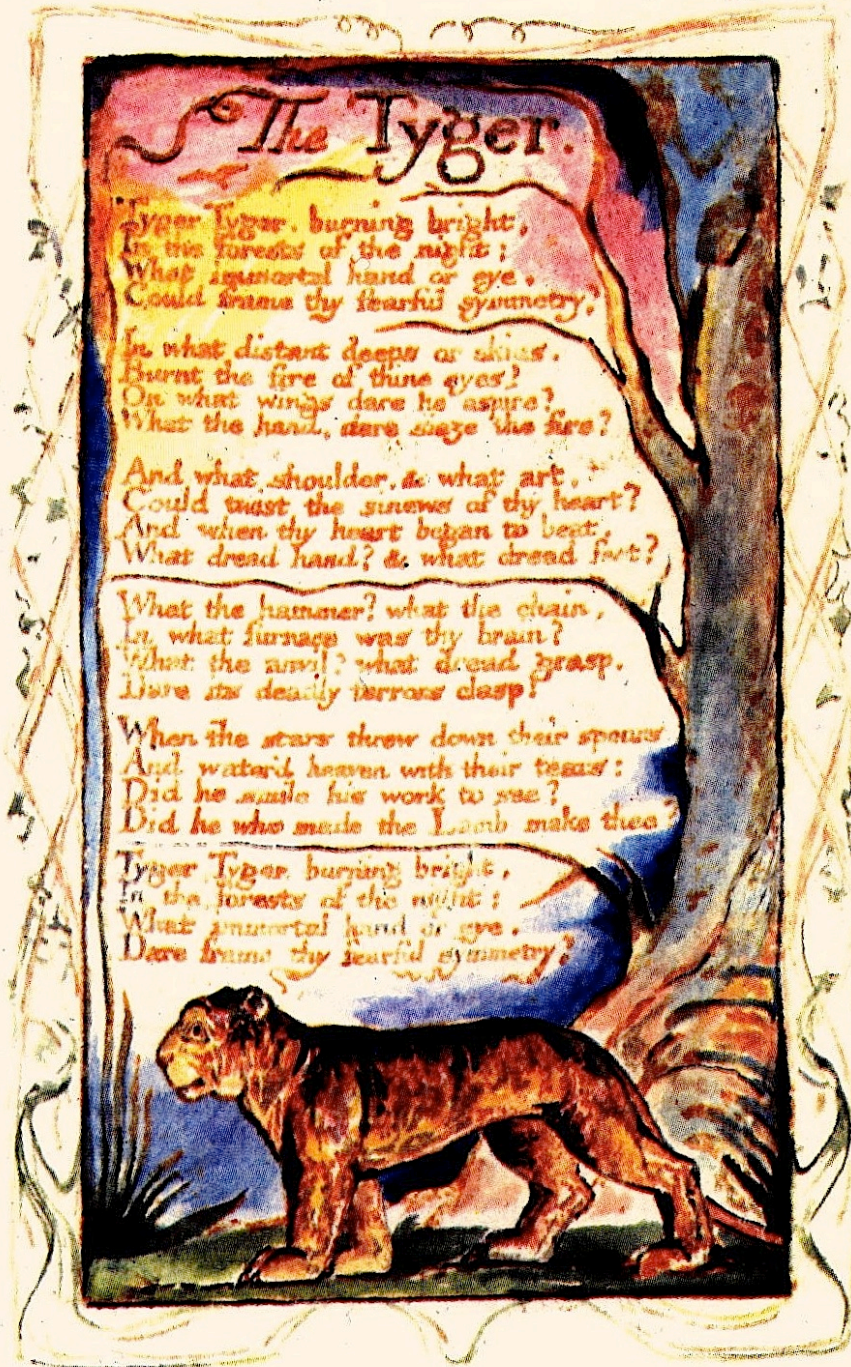 The Tyger.
Tyger Tyger. burning bright,
In the forests of the night;
What immortal hand or eye.
Could frame thy fearful symmetry?
In what distant deeps or skies.
Burnt the fire of thine eyes?
On what wings dare he aspire?
What the hand, dare sieze the fire?
And what shoulder, & what art.
Could twist the sinews of thy heart?
And when thy heart began to beat,
What dread hand? & what dread feet?
What the hammer? what the chain,
In what furnace was thy brain?
What the anvil? what dread grasp.
Dare its deadly terrors clasp!
When the stars threw down their spears
And water'd heaven with their tears:
Did he smile his work to see?
Did he who made the Lamb make thee?
Tyger Tyger burning bright,
In the forests of the night:
What immortal hand or eye.
Dare frame thy fearful symmetry?